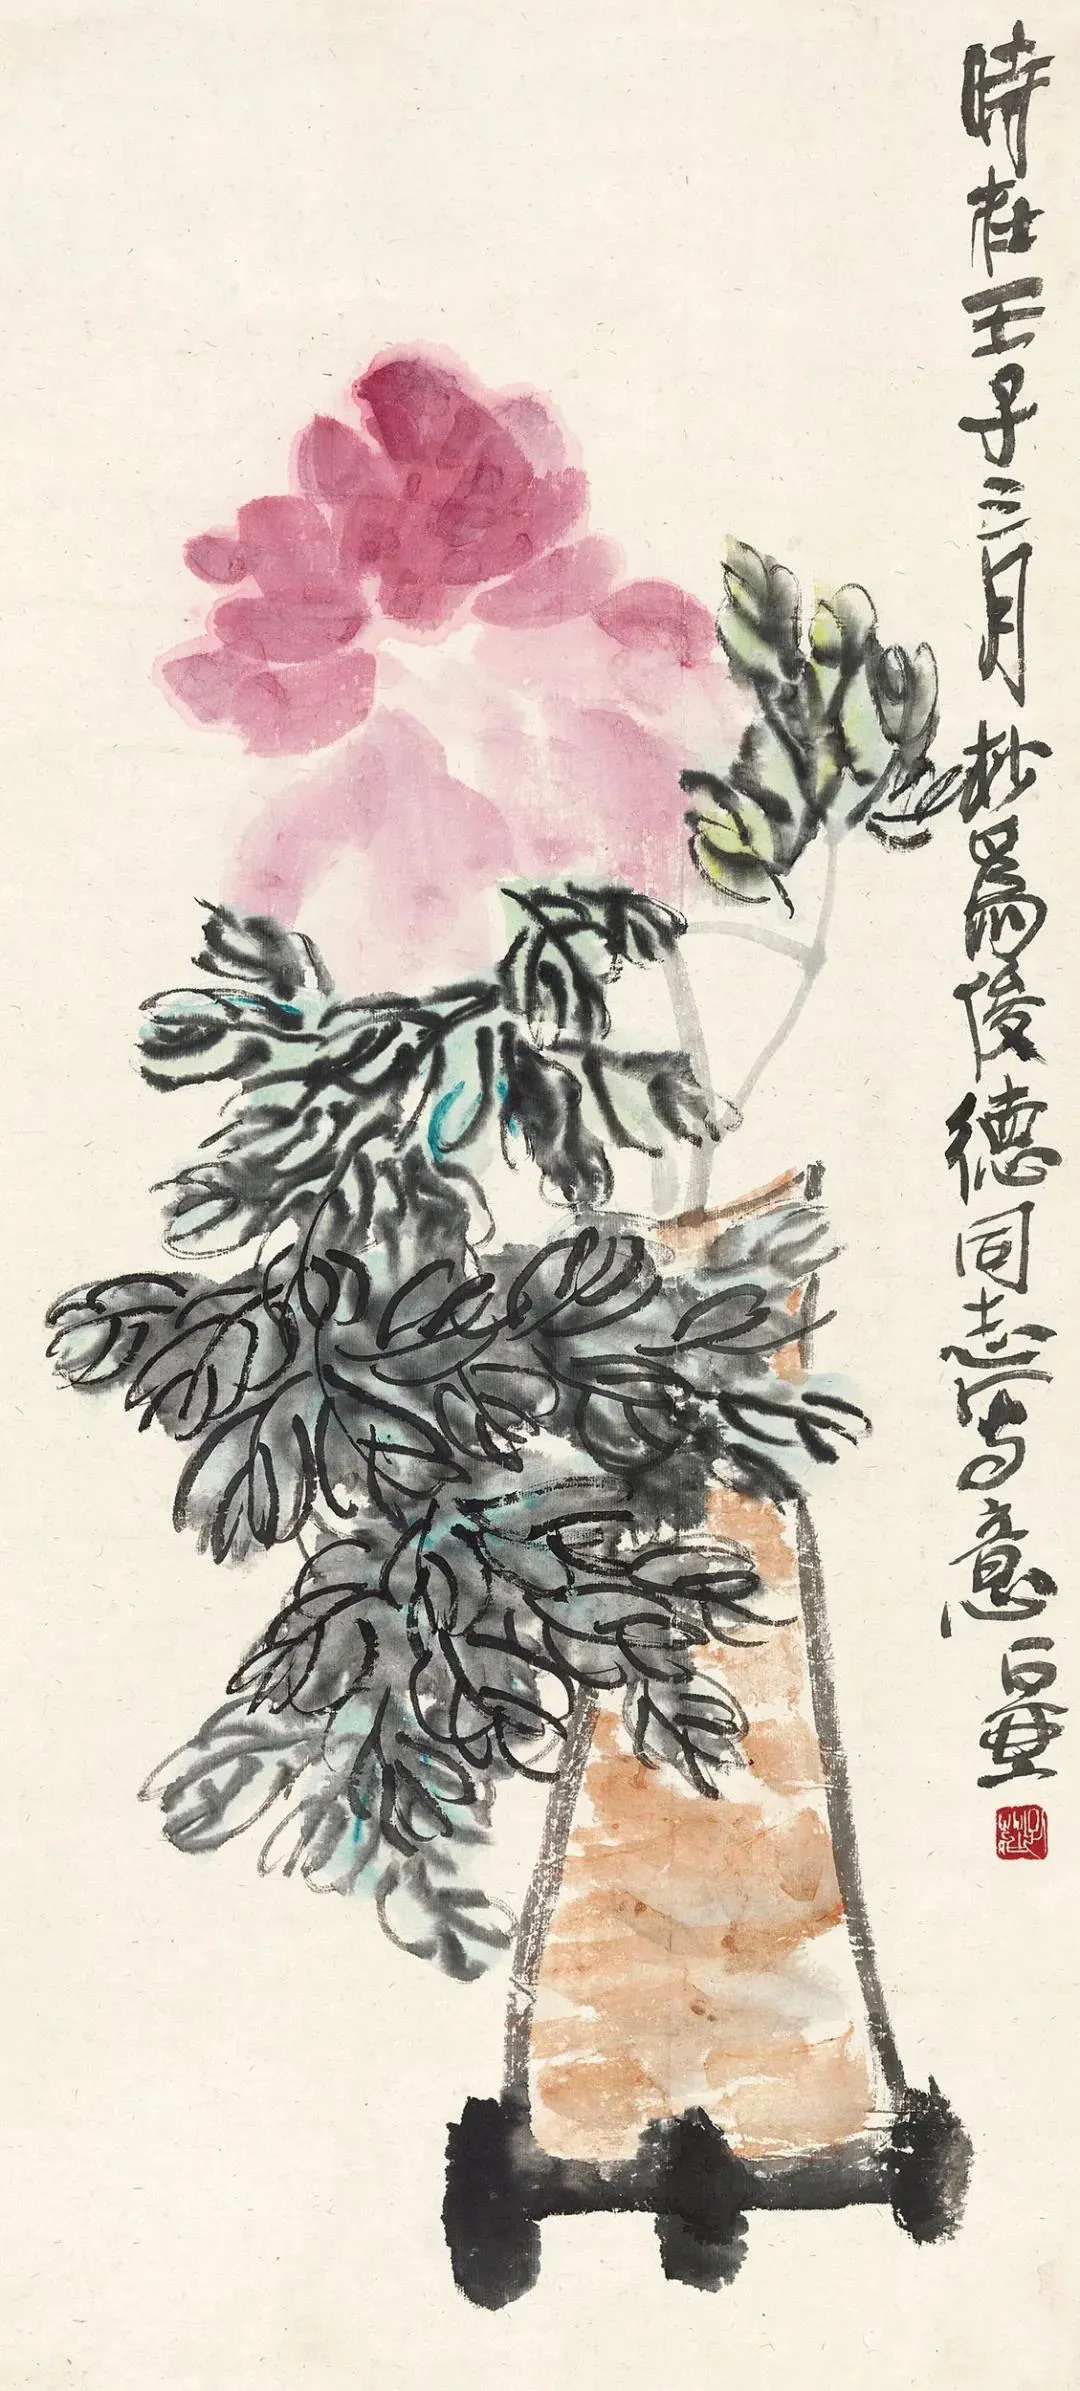 時在壬子三月杪爲俊德同志写意石壶